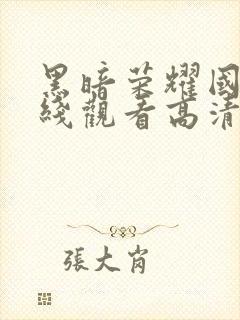 黑暗荣耀國
綫觀看高清
張大肖